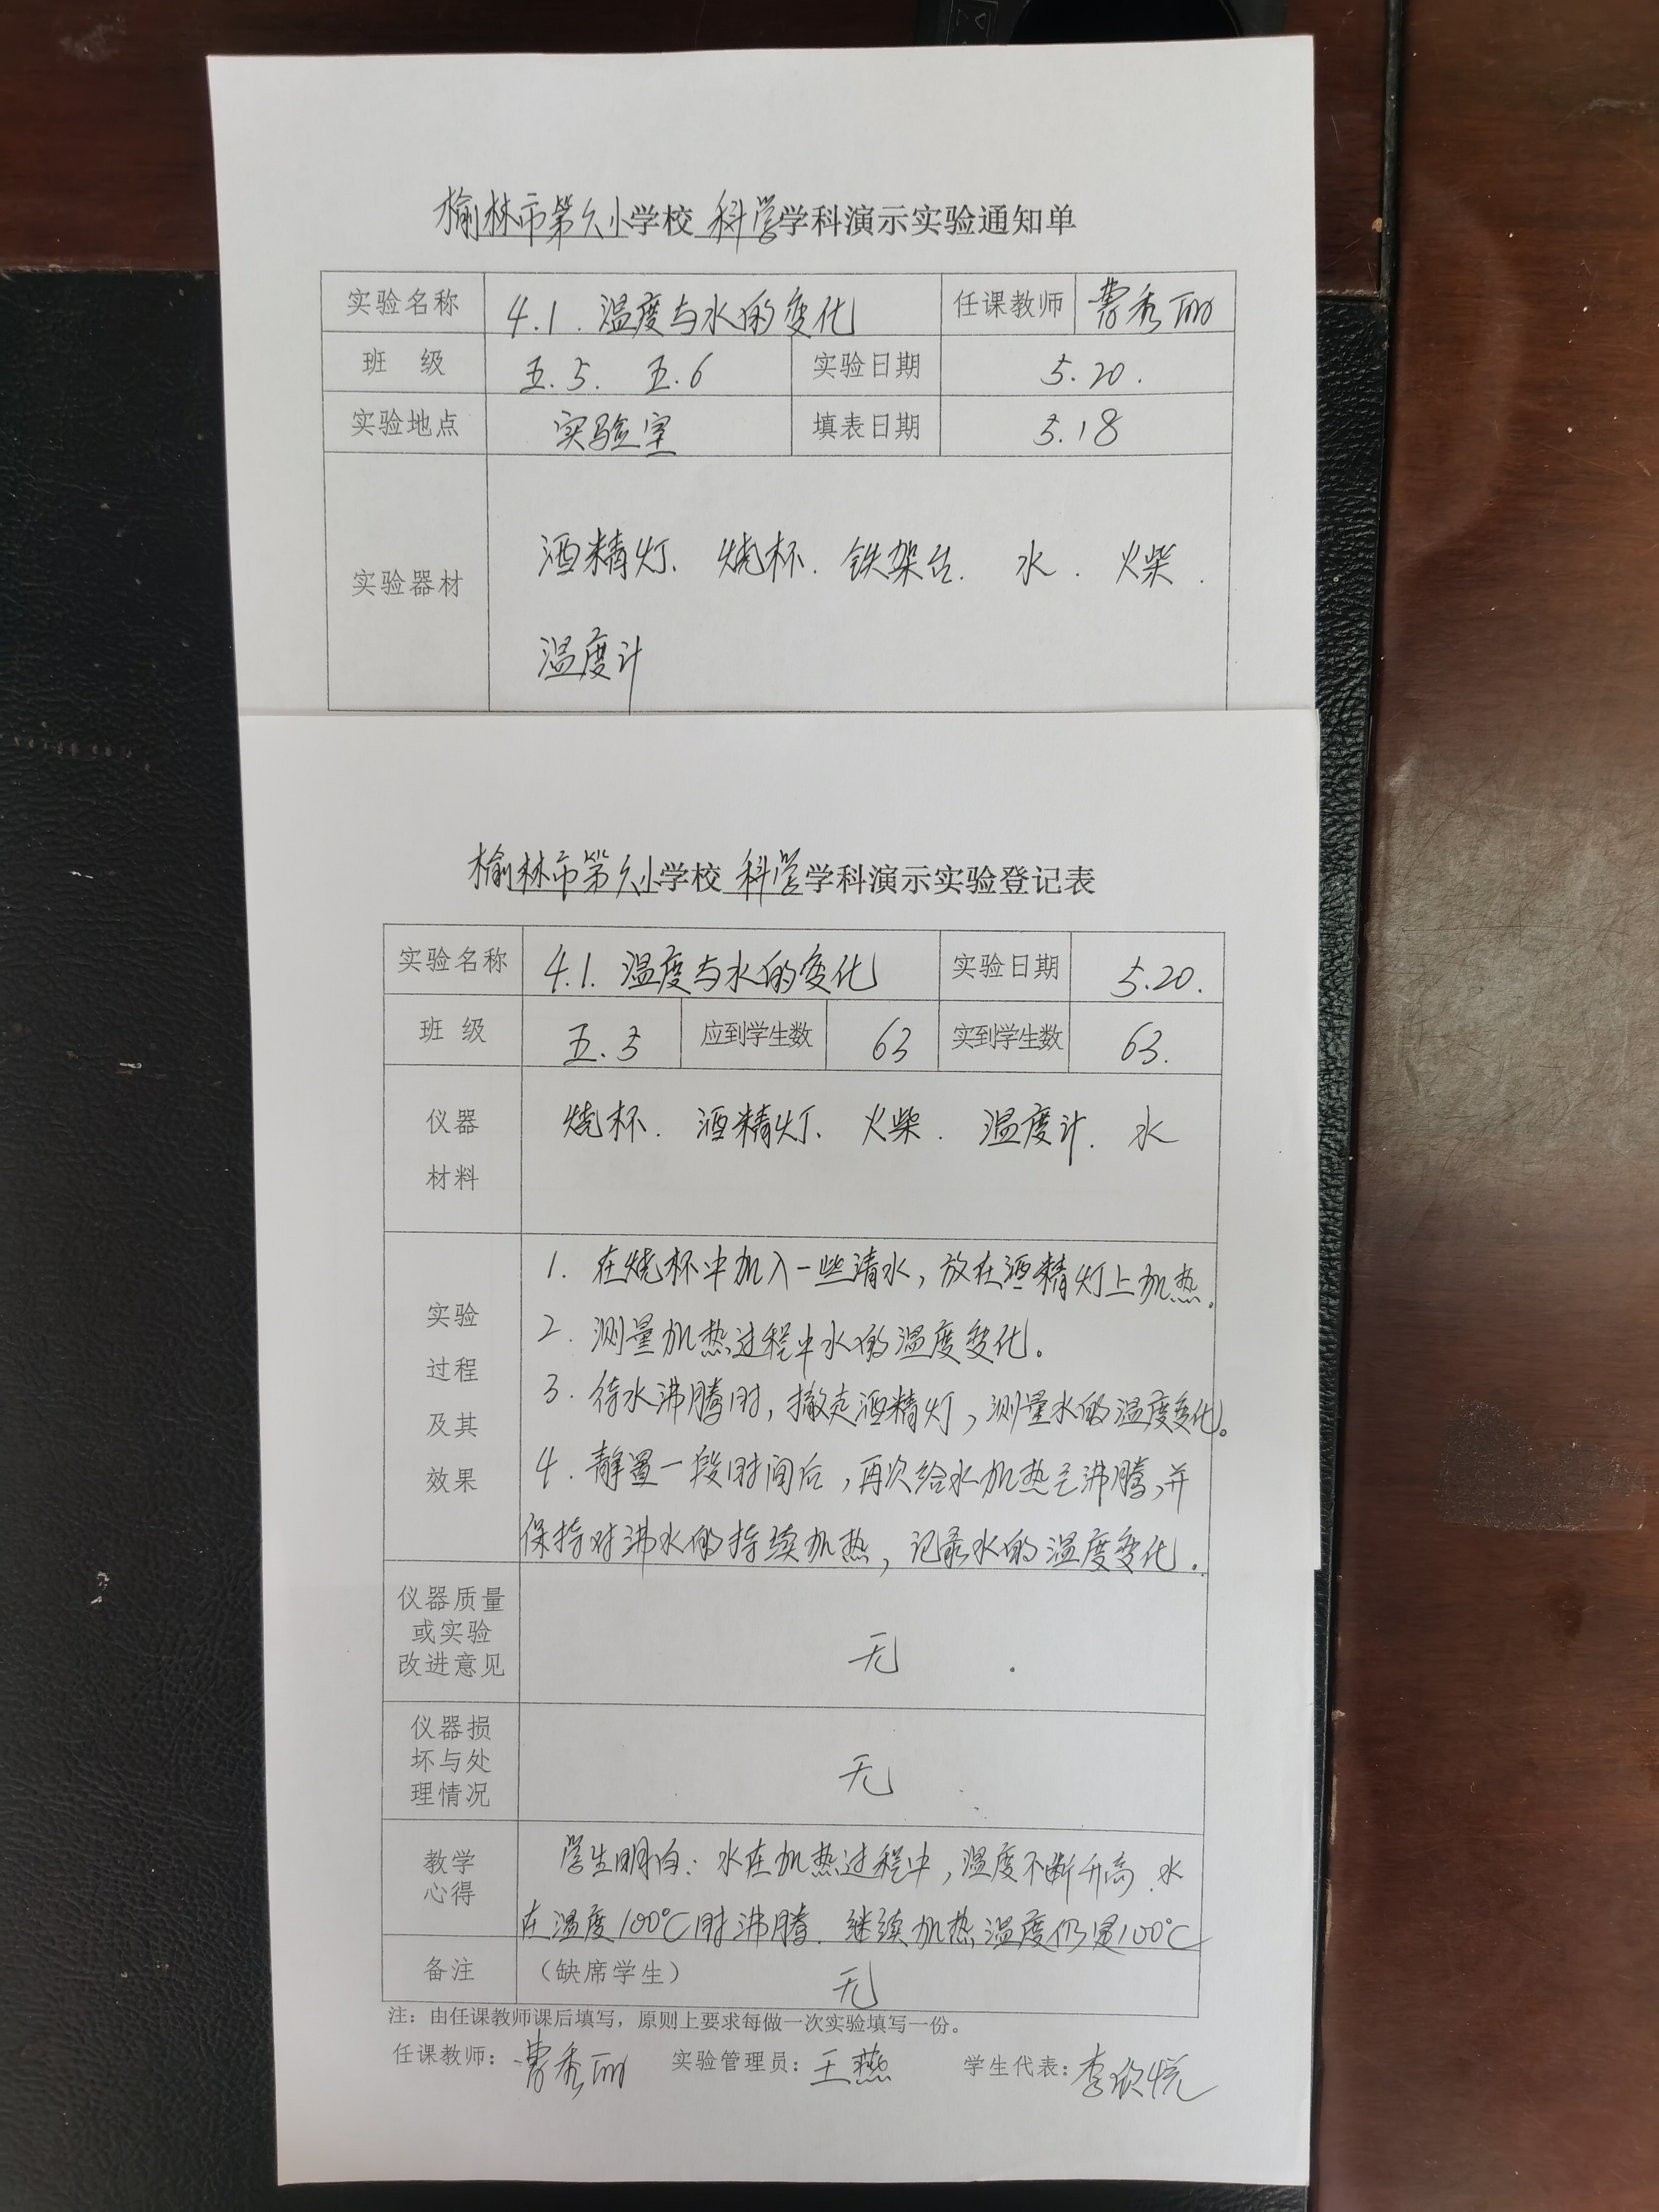 榆林市第六小学校 科学学科演示实验通知单
实验名称 4.1. 温度与水的变化 任课教师 曹秀丽
班 级 五.5. 五.6 实验日期 5.20.
实验地点 实验室 填表日期 5.18
实验器材 酒精灯、烧杯. 铁架台. 水. 火柴.
温度计
榆林市第六小学校 科学学科演示实验登记表
实验名称 4.1. 温度与水的变化 实验日期 5.20.
班 级 五.5 应到学生数 63 实到学生数 63.
仪器 烧杯. 酒精灯、火柴. 温度计. 水
材料
1. 在烧杯中加入一些清水，放在酒精灯上加热。
实验
2. 测量加热过程中水的温度变化。
过程
3. 待水沸腾时，撤走酒精灯，测量水的温度变化。
及其
4. 静置一段时间后，再次给水加热至沸腾，并
效果
保持对沸水的持续加热，记录水的温度变化.
仪器质量
或实验 无
改进意见
仪器损
坏与处 无
理情况
教学 学生明白：水在加热过程中，温度不断升高.水
心得 在温度100℃时沸腾. 继续加热温度仍是100℃
备注 （缺席学生） 无
注：由任课教师课后填写，原则上要求每做一次实验填写一份。
任课教师：曹秀丽 实验管理员：王燕 学生代表：李欣悦